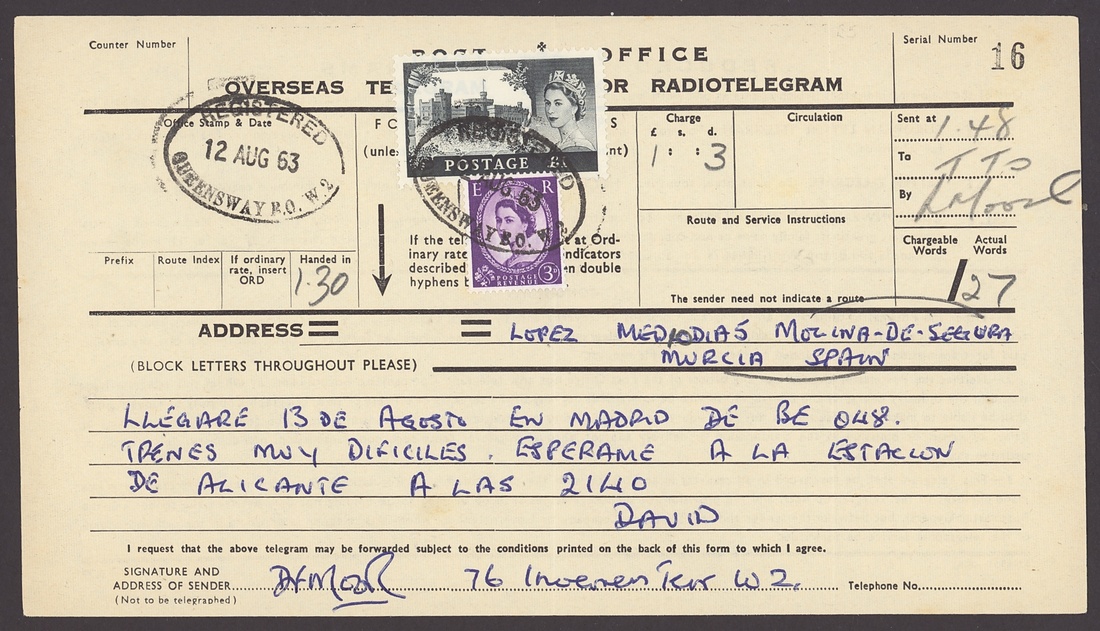 Counter Number
POST OFFICE
Serial Number
16
OVERSEAS TE OR RADIOTELEGRAM
Office Stamp & Date
REGISTERED
12 AUG 63
QUEENSWAY B.O. W.2
F
(unle
nt)
POSTAGE
REGISTERED
AUG 63
QUEENSWAY B.O. W.2
E R
POSTAGE
REVENUE
3D
Charge
£ s. d.
1 : : 3
Circulation
Sent at 1.48
To
By
Route and Service Instructions
Chargeable Words
Actual Words
/27
If the tel at Ord-
inary rate ndicators
described, en double
hyphens b
Prefix
Route Index
If ordinary rate, insert ORD
Handed in
1.30
The sender need not indicate a route
ADDRESS = = LOPEZ MEDIODIAS MOLINA-DE-SEGURA
(BLOCK LETTERS THROUGHOUT PLEASE) MURCIA SPAIN
LLEGARE 13 DE AGOSTO EN MADRID DE BE 048.
TRENES MUY DIFICILES. ESPERAME A LA ESTACION
DE ALICANTE A LAS 2140
DAVID
I request that the above telegram may be forwarded subject to the conditions printed on the back of this form to which I agree.
SIGNATURE AND
ADDRESS OF SENDER 76 W2. Telephone No.
(Not to be telegraphed)